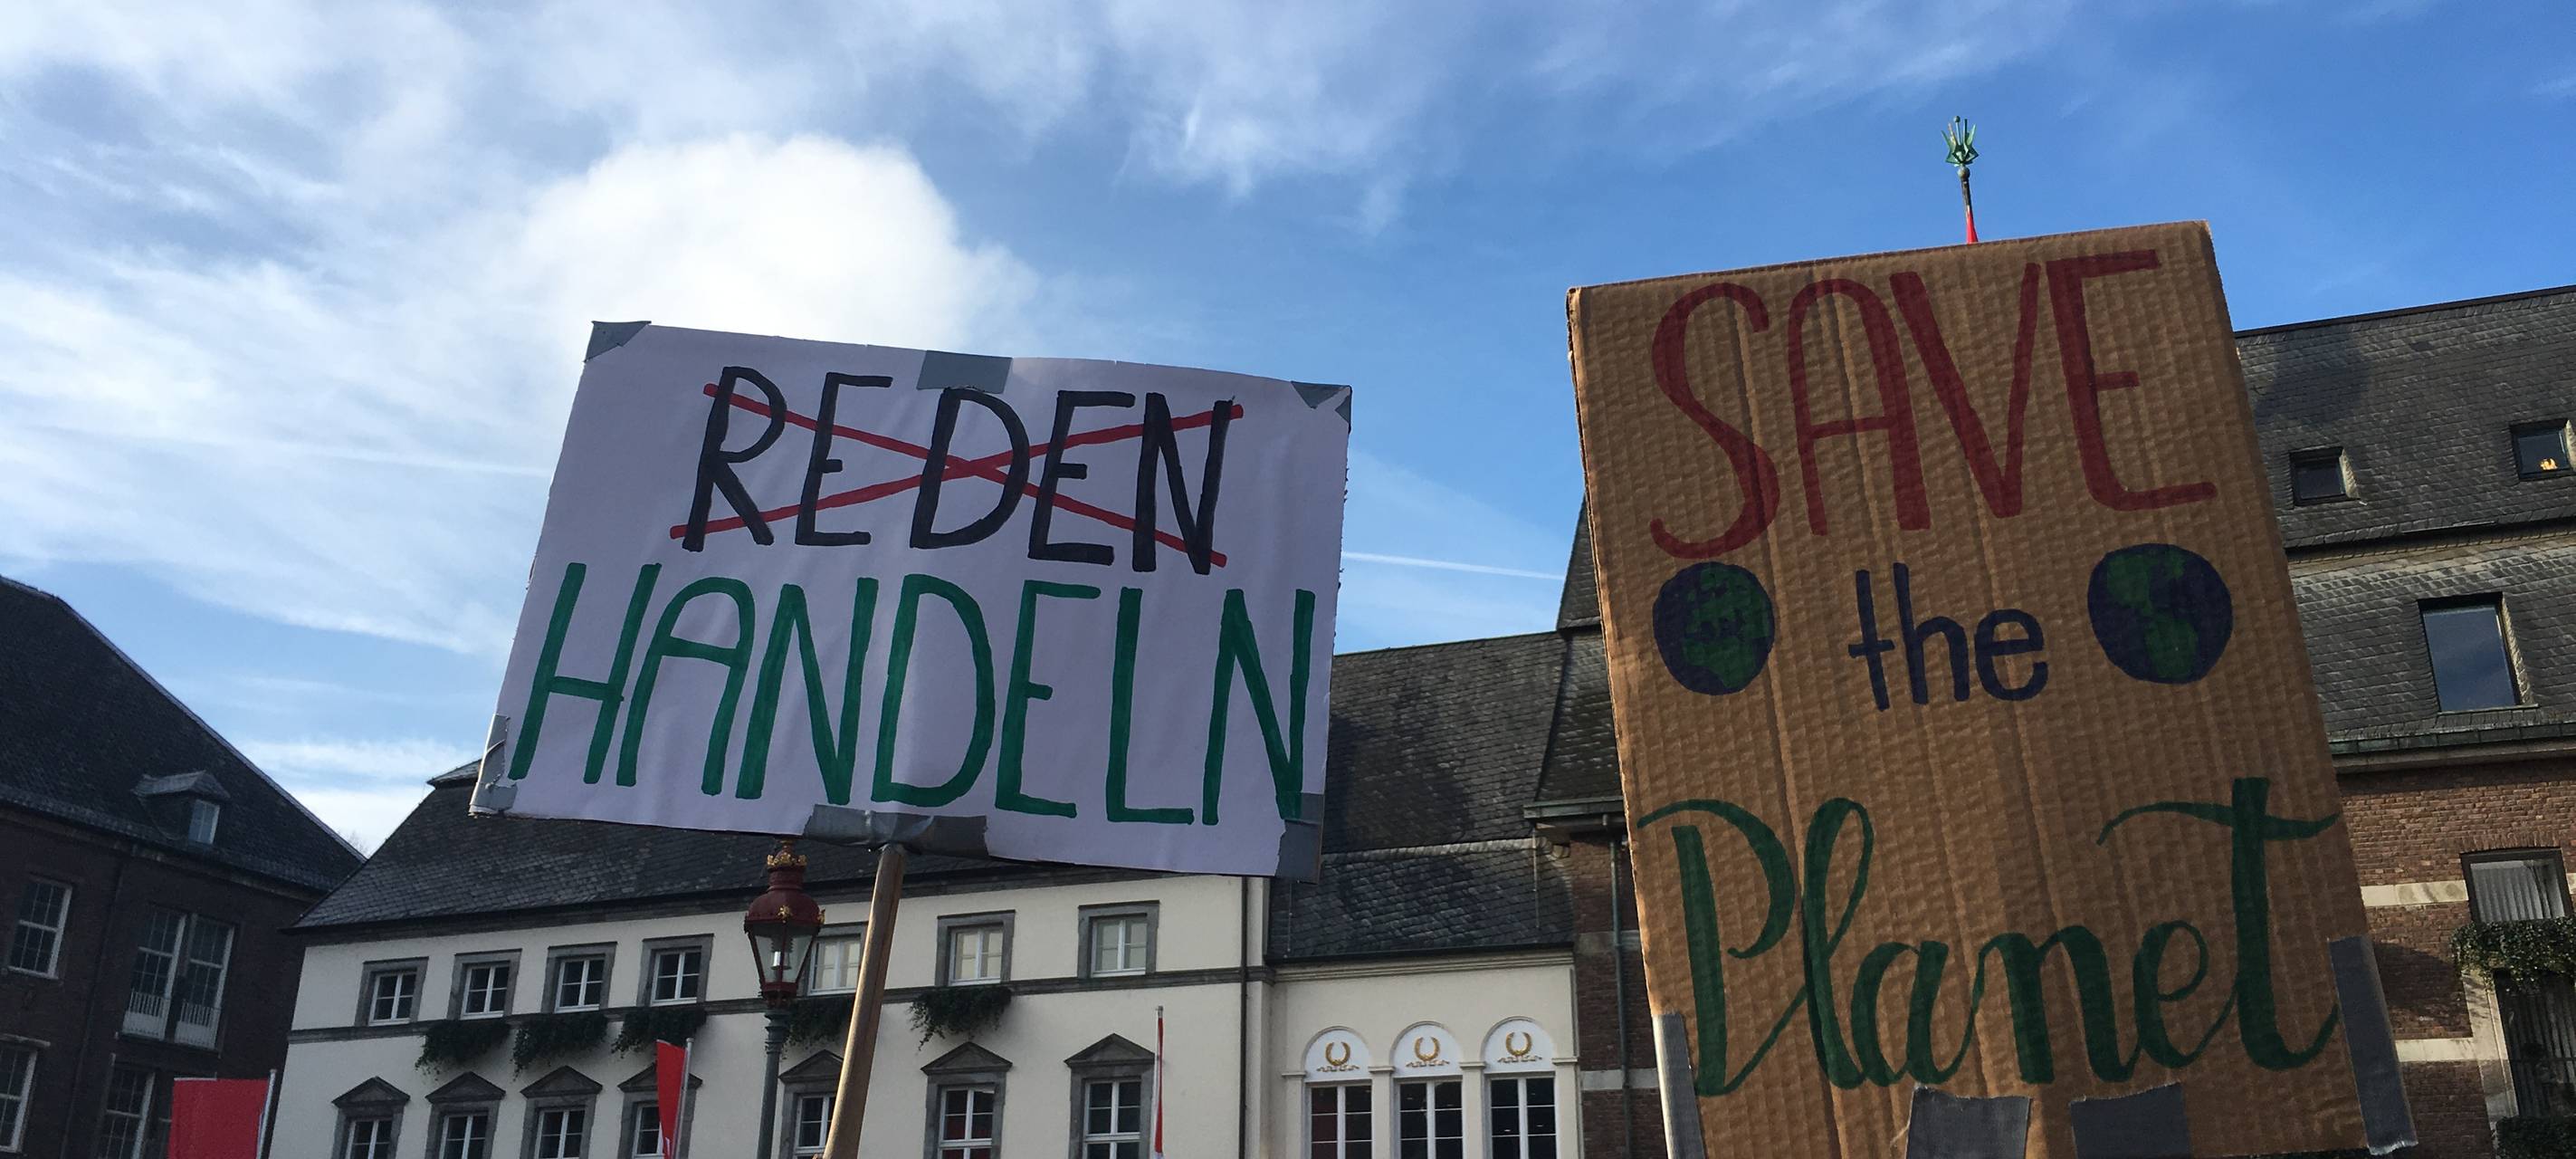 REDEN
HANDELN
SAVE
the
Planet